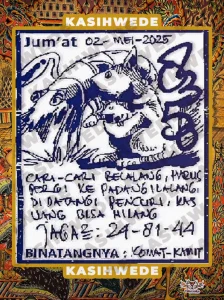 KASIHWEDE
Jum'at 02-MEI-2025
8256
CARI-CARI BELALANG, HARUS
PERGI KE PADANG ILALANG
DI DATANGI PENCURI, KAS
UANG BISA HILANG
JAGAZ: 24-81-44
BINATANGNYA: KOMAT-KAMIT
KASIHWEDE